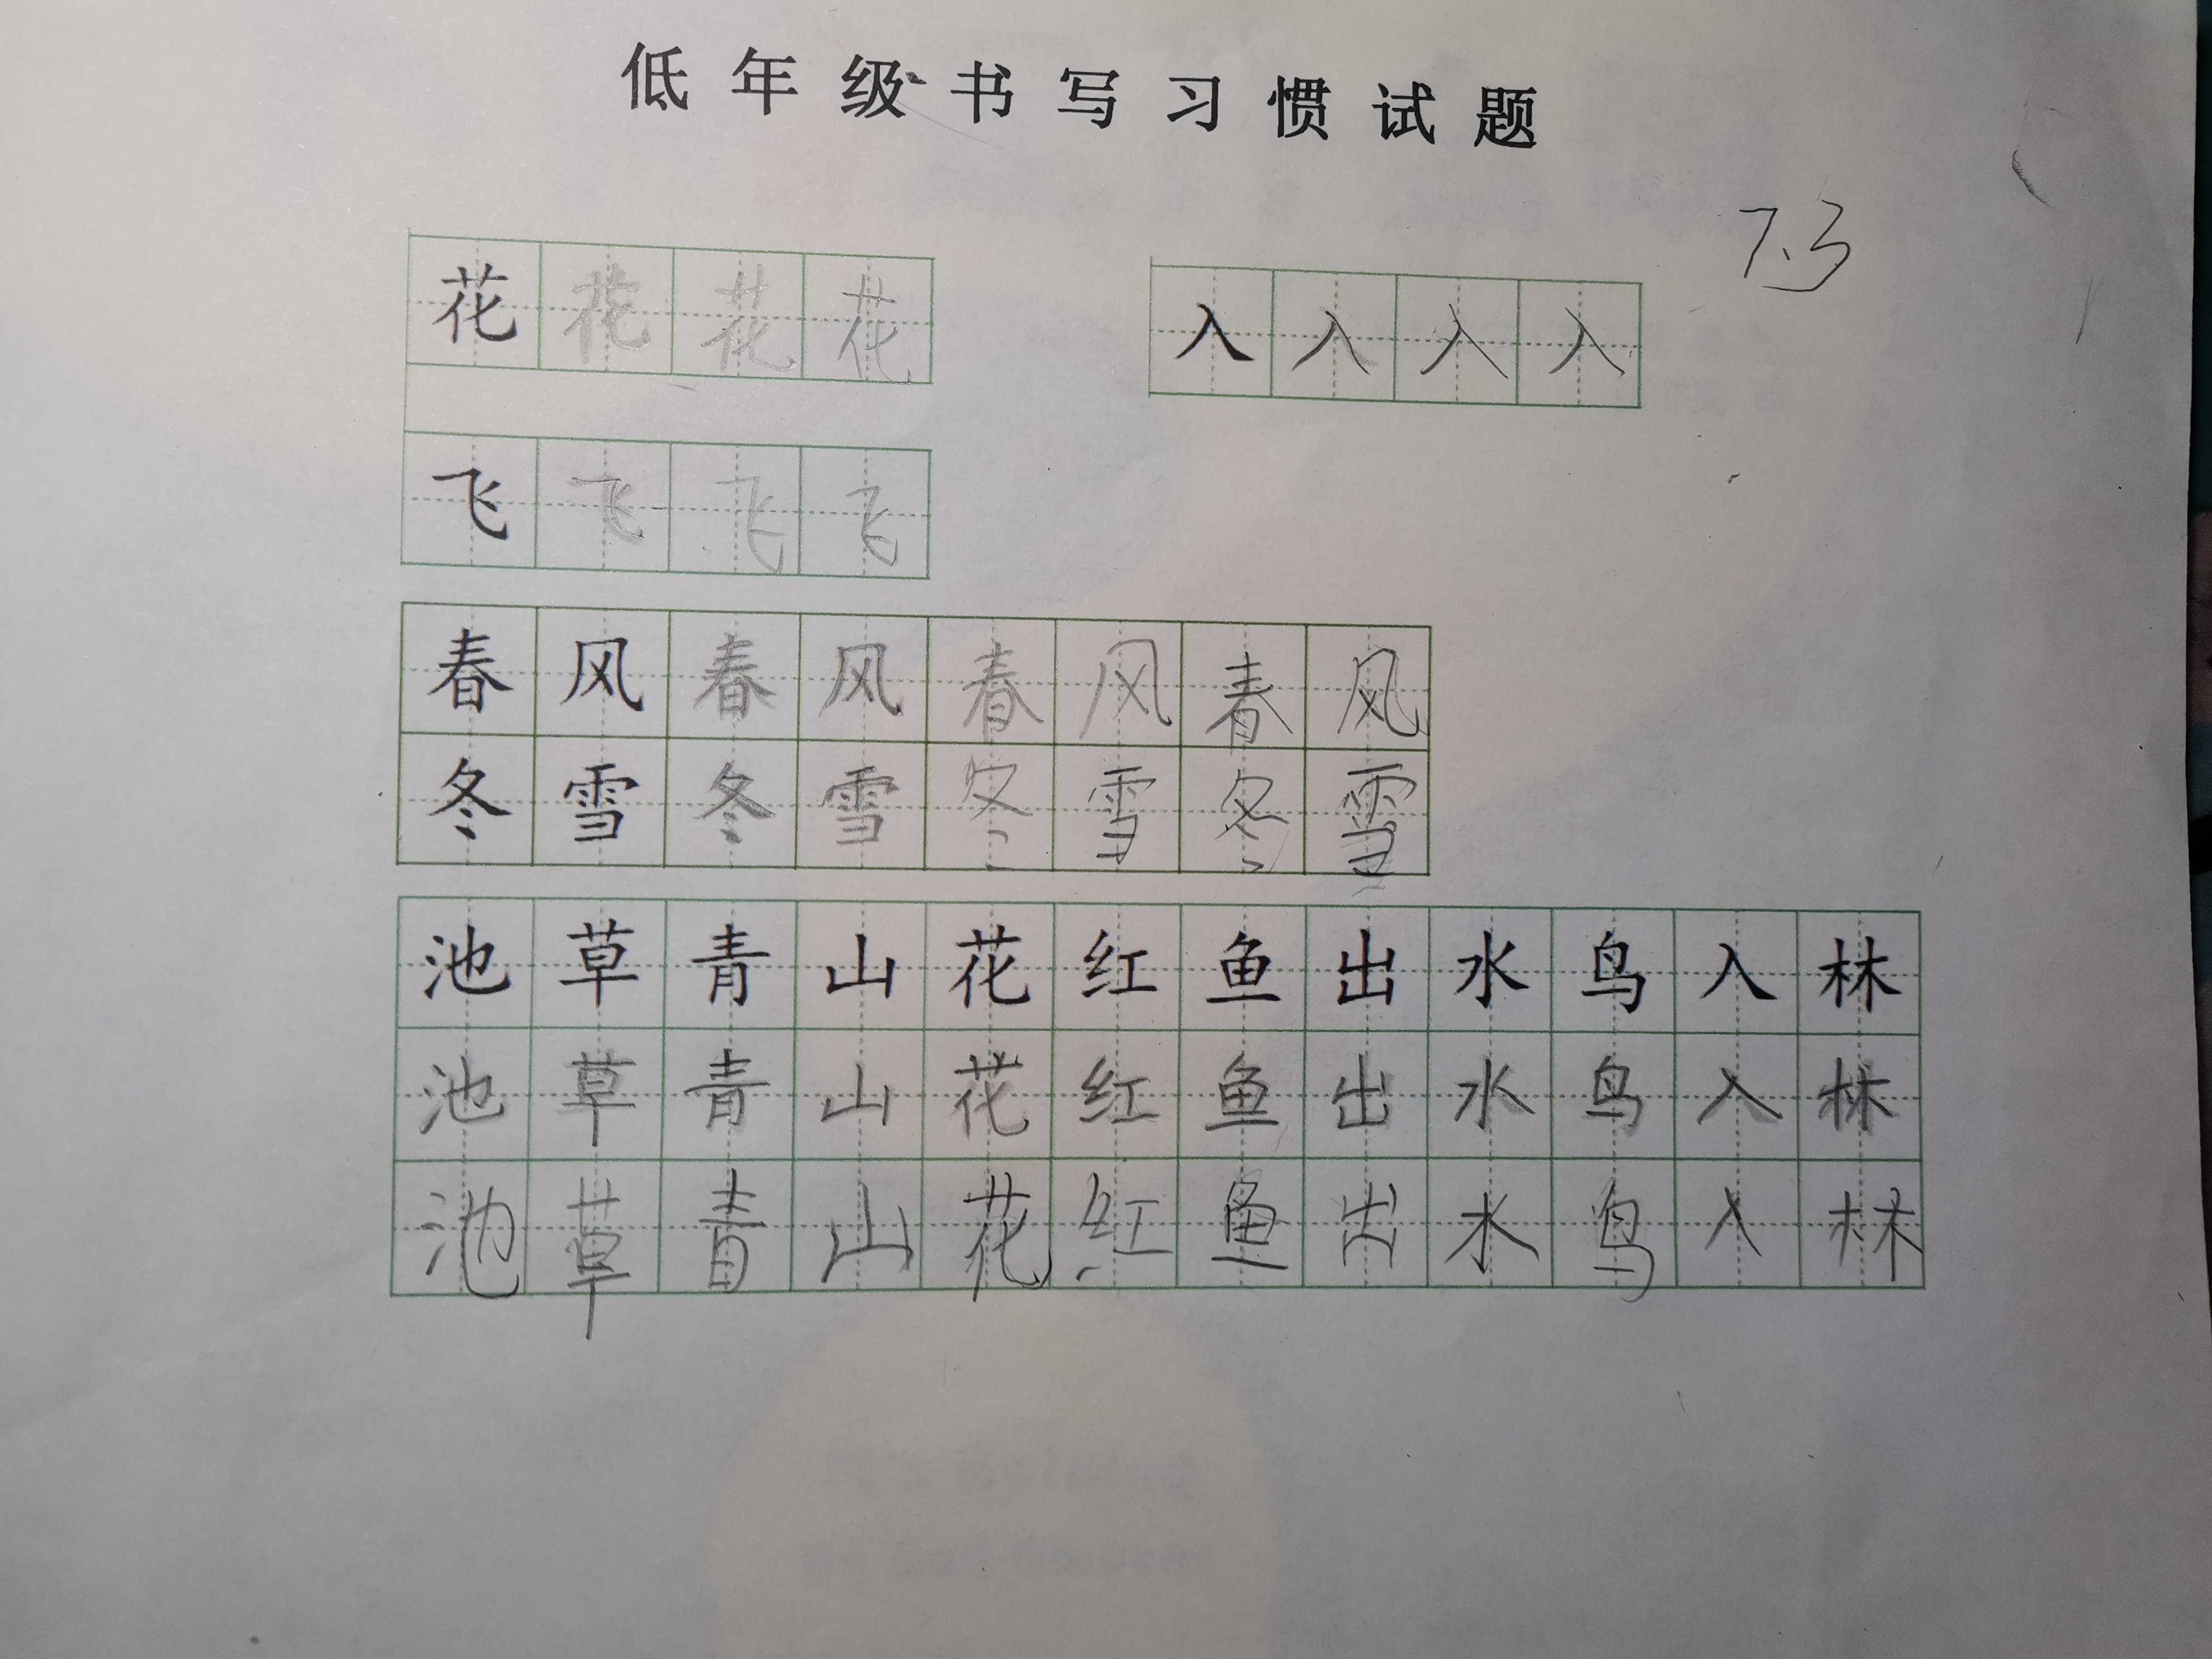 低年级书写习惯试题
7.3
花花花花 入入入入
飞飞飞飞
春风春风春风春风
冬雪冬雪冬雪冬雪
池草青山花红鱼出水鸟入林
池草青山花红鱼出水鸟入林
池草青山花红鱼出水鸟入林